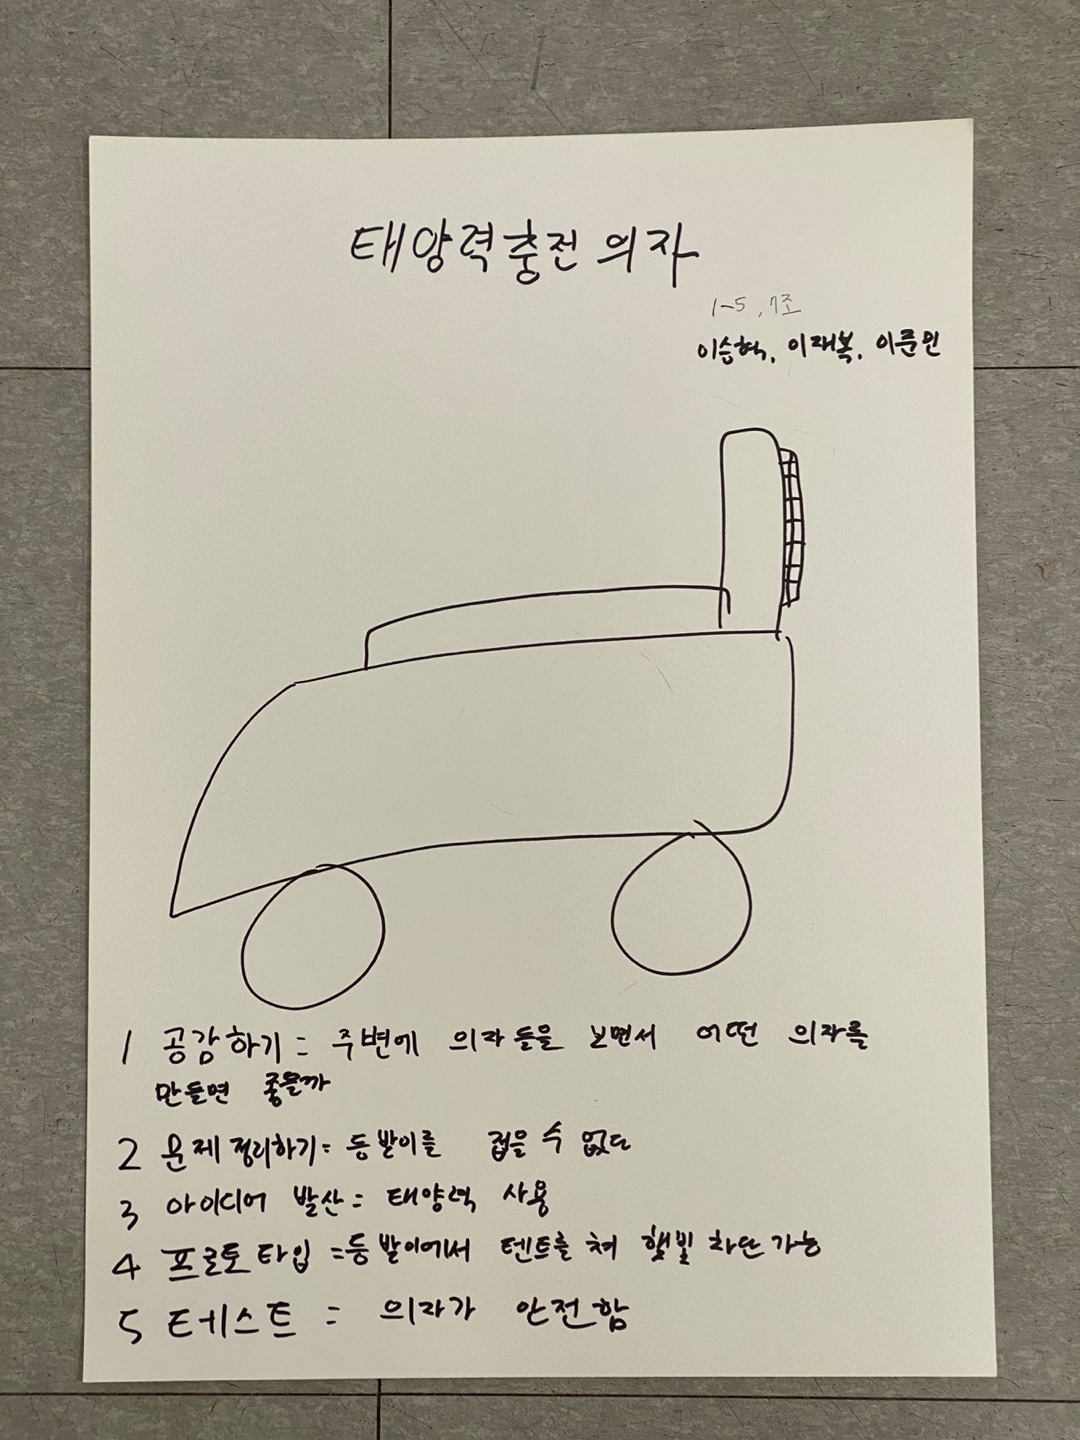 태양력충전 의자
1-5, 7조
이승혁, 이재복, 이준민
1 공감하기 = 주변에 의자들을 보면서 어떤 의자를
만들면 좋을까
2 문제정리하기 = 등받이를 접을 수 없다
3 아이디어 발산 = 태양력 사용
4 프로토타입 = 등받이에서 텐트를 쳐 햇빛 차단 가능
5 테스트 = 의자가 안전함